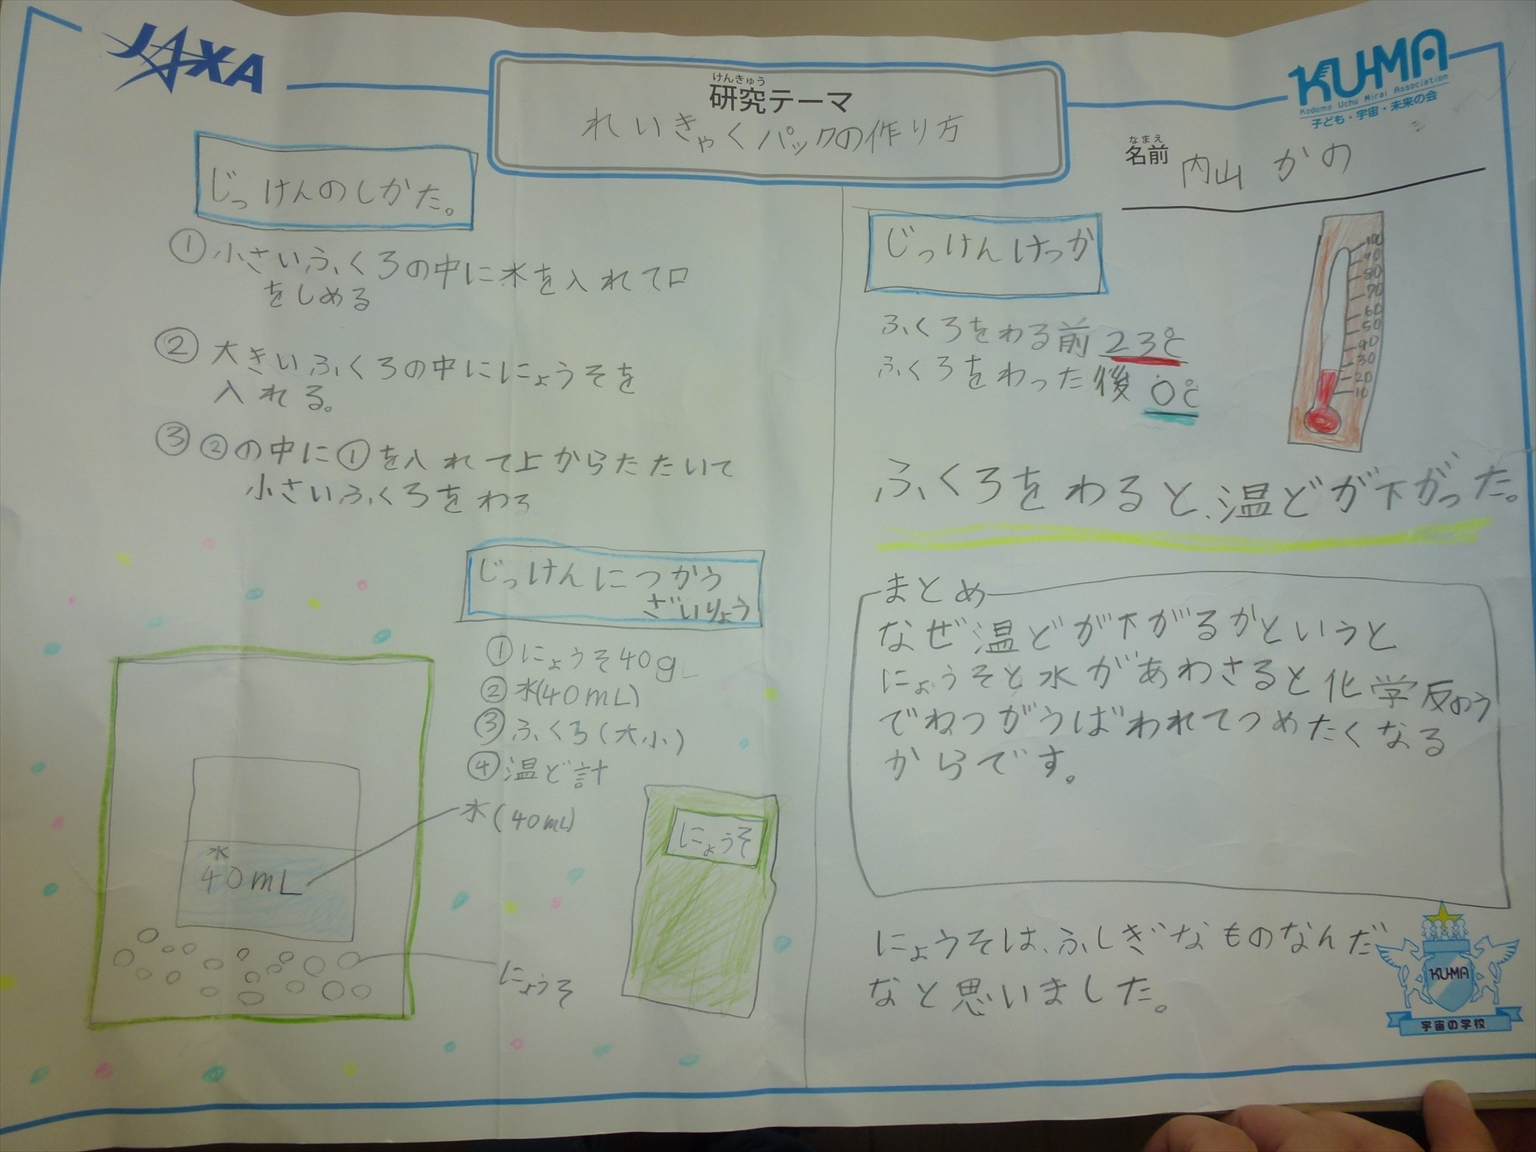 JAXA
けんきゅう
研究テーマ
れいきゃくパックの作り方
KU-MA
Kodomo Uchu Mirai Association
子ども・宇宙・未来の会
なまえ
名前 内山 かの
じっけんのしかた。
①小さいふくろの中に水を入れて口
をしめる
②大きいふくろの中ににょうそを
入れる。
③②の中に①を入れて上からたたいて
小さいふくろをわる
じっけんにつかう
ざいりょう
①にょうそ40g
②水(40mL)
③ふくろ(大小)
④温ど計
水(40mL)
水
40mL
にょうそ
にょうそ
じっけんけっか
ふくろをわる前 23℃
ふくろをわった後 0℃
100
90
80
70
60
50
40
30
20
10
ふくろをわると、温どが下がった。
まとめ
なぜ温どが下がるかというと
にょうそと水があわさると化学反のう
でねつがうばわれてつめたくなる
からです。
にょうそは、ふしぎなものなんだ
なと思いました。
KU-MA
宇宙の学校